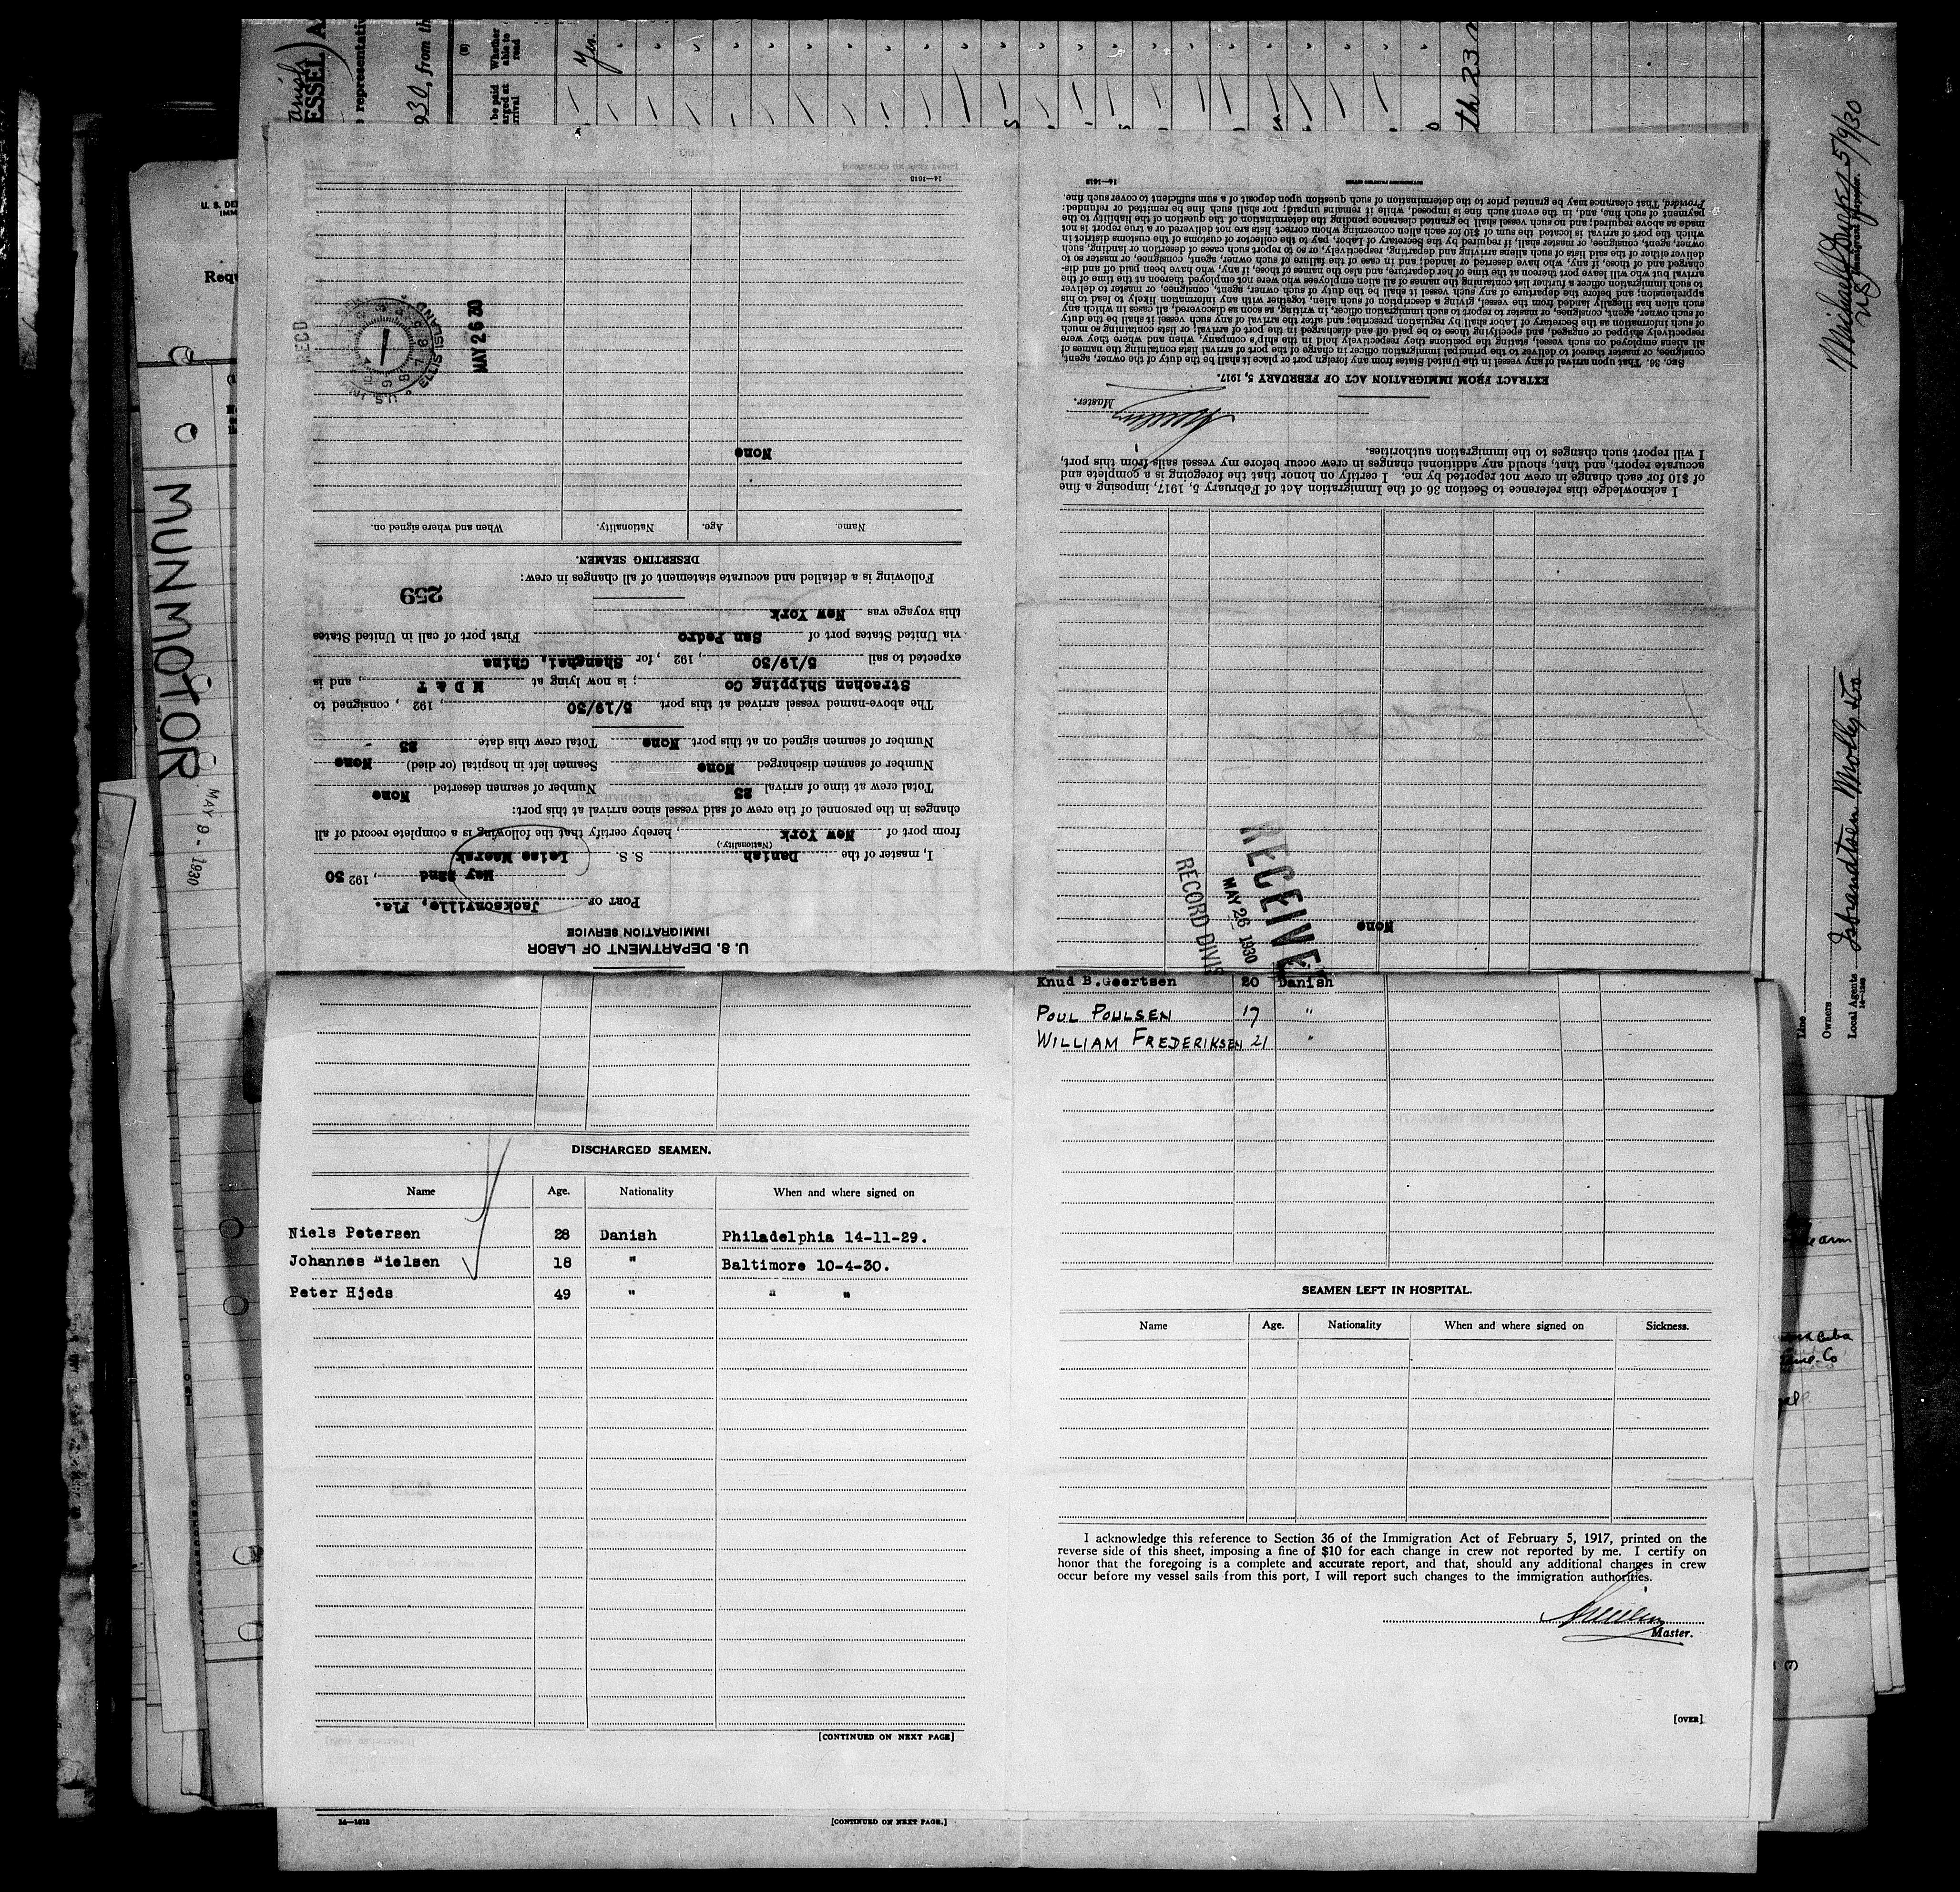 ESSEL) A
representativ
930, from th
(8)
Whether able to read
be paid
arged at
rrival
Yes.
th 23
U. S. DE
IMM
Requ
MUNMOTOR
MAY 9 - 1930
5/9/30
Line
Owners
Local Agents
U. S. DEPARTMENT OF LABOR
IMMIGRATION SERVICE
PORT OF Jacksonville, Fla.
May 22nd, 192 30
I, master of the Danish S. S. Leise Maersk
(Nationality.)
from port of New York, hereby certify that the following is a complete record of all
changes in the personnel of the crew of said vessel since arrival at this port:
Total crew at time of arrival 25 Number of seamen deserted None
Number of seamen discharged None Seamen left in hospital (or died) None
Number of seamen signed on at this port None Total crew this date 25
The above-named vessel arrived at this port 5/19/30, 192 , consigned to
Strachan Shipping Co; is now lying at M D & T, and is
expected to sail 5/19/30, 192 , for Shanghai, China
via United States port of San Pedro First port of call in United States
this voyage was New York
259
Following is a detailed and accurate statement of all changes in crew:
DESERTING SEAMEN.
Name. Age. Nationality. When and where signed on.
None
REC'D
ELLIS ISLAND
MAY 26 30
14—1613
None
RECEIVE
MAY 26 1930
RECORD DIVIS
I acknowledge this reference to Section 36 of the Immigration Act of February 5, 1917, imposing a fine
of $10 for each change in crew not reported by me. I certify on honor that the foregoing is a complete and
accurate report, and that, should any additional changes in crew occur before my vessel sails from this port,
I will report such changes to the immigration authorities.
Master.
EXTRACT FROM IMMIGRATION ACT OF FEBRUARY 5, 1917.
SEC. 36. That upon arrival of any vessel in the United States from any foreign port or place it shall be the duty of the owner, agent,
consignee, or master thereof to deliver to the principal immigration officer in charge of the port of arrival lists containing the names of
all aliens employed on such vessel, stating the positions they respectively hold in the ship's company, when and where they were
respectively shipped or engaged, and specifying those to be paid off and discharged in the port of arrival; or lists containing so much
of such information as the Secretary of Labor shall by regulation prescribe; and after the arrival of any such vessel it shall be the duty
of such owner, agent, consignee, or master to report to such immigration officer, in writing, as soon as discovered, all cases in which any
such alien has illegally landed from the vessel, giving a description of such alien, together with any information likely to lead to his
apprehension; and before the departure of any such vessel it shall be the duty of such owner, agent, consignee, or master to deliver
to such immigration officer a further list containing the names of all alien employees who were not employed thereon at the time of the
arrival but who will leave port thereon at the time of her departure, and also the names of those, if any, who have been paid off and dis-
charged and of those, if any, who have deserted or landed; and in case of the failure of such owner, agent, consignee, or master so to
deliver either of the said lists of such aliens arriving and departing, respectively, or so to report such cases of desertion or landing, such
owner, agent, consignee, or master shall, if required by the Secretary of Labor, pay to the collector of customs of the customs district in
which the port of arrival is located the sum of $10 for each alien concerning whom correct lists are not delivered or a true report is not
made as above required; and no such vessel shall be granted clearance pending the determination of the question of the liability to the
payment of such fine, and, in the event such fine is imposed, while it remains unpaid; nor shall such fine be remitted or refunded:
Provided, That clearance may be granted prior to the determination of such question upon deposit of a sum sufficient to cover such fine.
14—1613
GOVERNMENT PRINTING OFFICE
DISCHARGED SEAMEN.
Name Age. Nationality When and where signed on
Niels Petersen 28 Danish Philadelphia 14-11-29.
Johannes Nielsen 18 " Baltimore 10-4-30.
Peter Hjeds 49 " " "
[CONTINUED ON NEXT PAGE]
Knud B. Geertsen 20 Danish
POUL POULSEN 17 "
WILLIAM FREDERIKSEN 21 "
SEAMEN LEFT IN HOSPITAL.
Name Age. Nationality When and where signed on Sickness.
I acknowledge this reference to Section 36 of the Immigration Act of February 5, 1917, printed on the
reverse side of this sheet, imposing a fine of $10 for each change in crew not reported by me. I certify on
honor that the foregoing is a complete and accurate report, and that, should any additional changes in crew
occur before my vessel sails from this port, I will report such changes to the immigration authorities.
Master.
[OVER]
14—1613
[CONTINUED ON NEXT PAGE.]